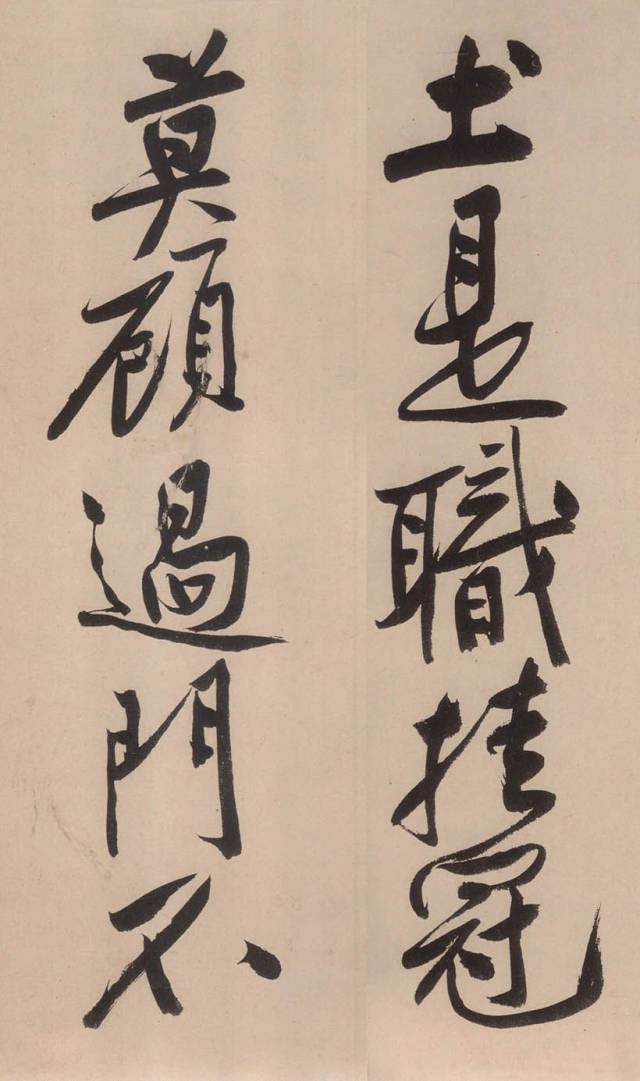 土是職掛冠
莫顧過門不